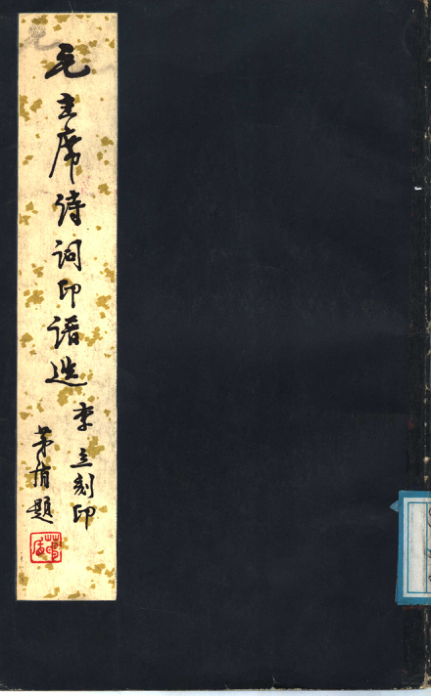 毛主席诗词印谱选
李立刻印
茅盾题